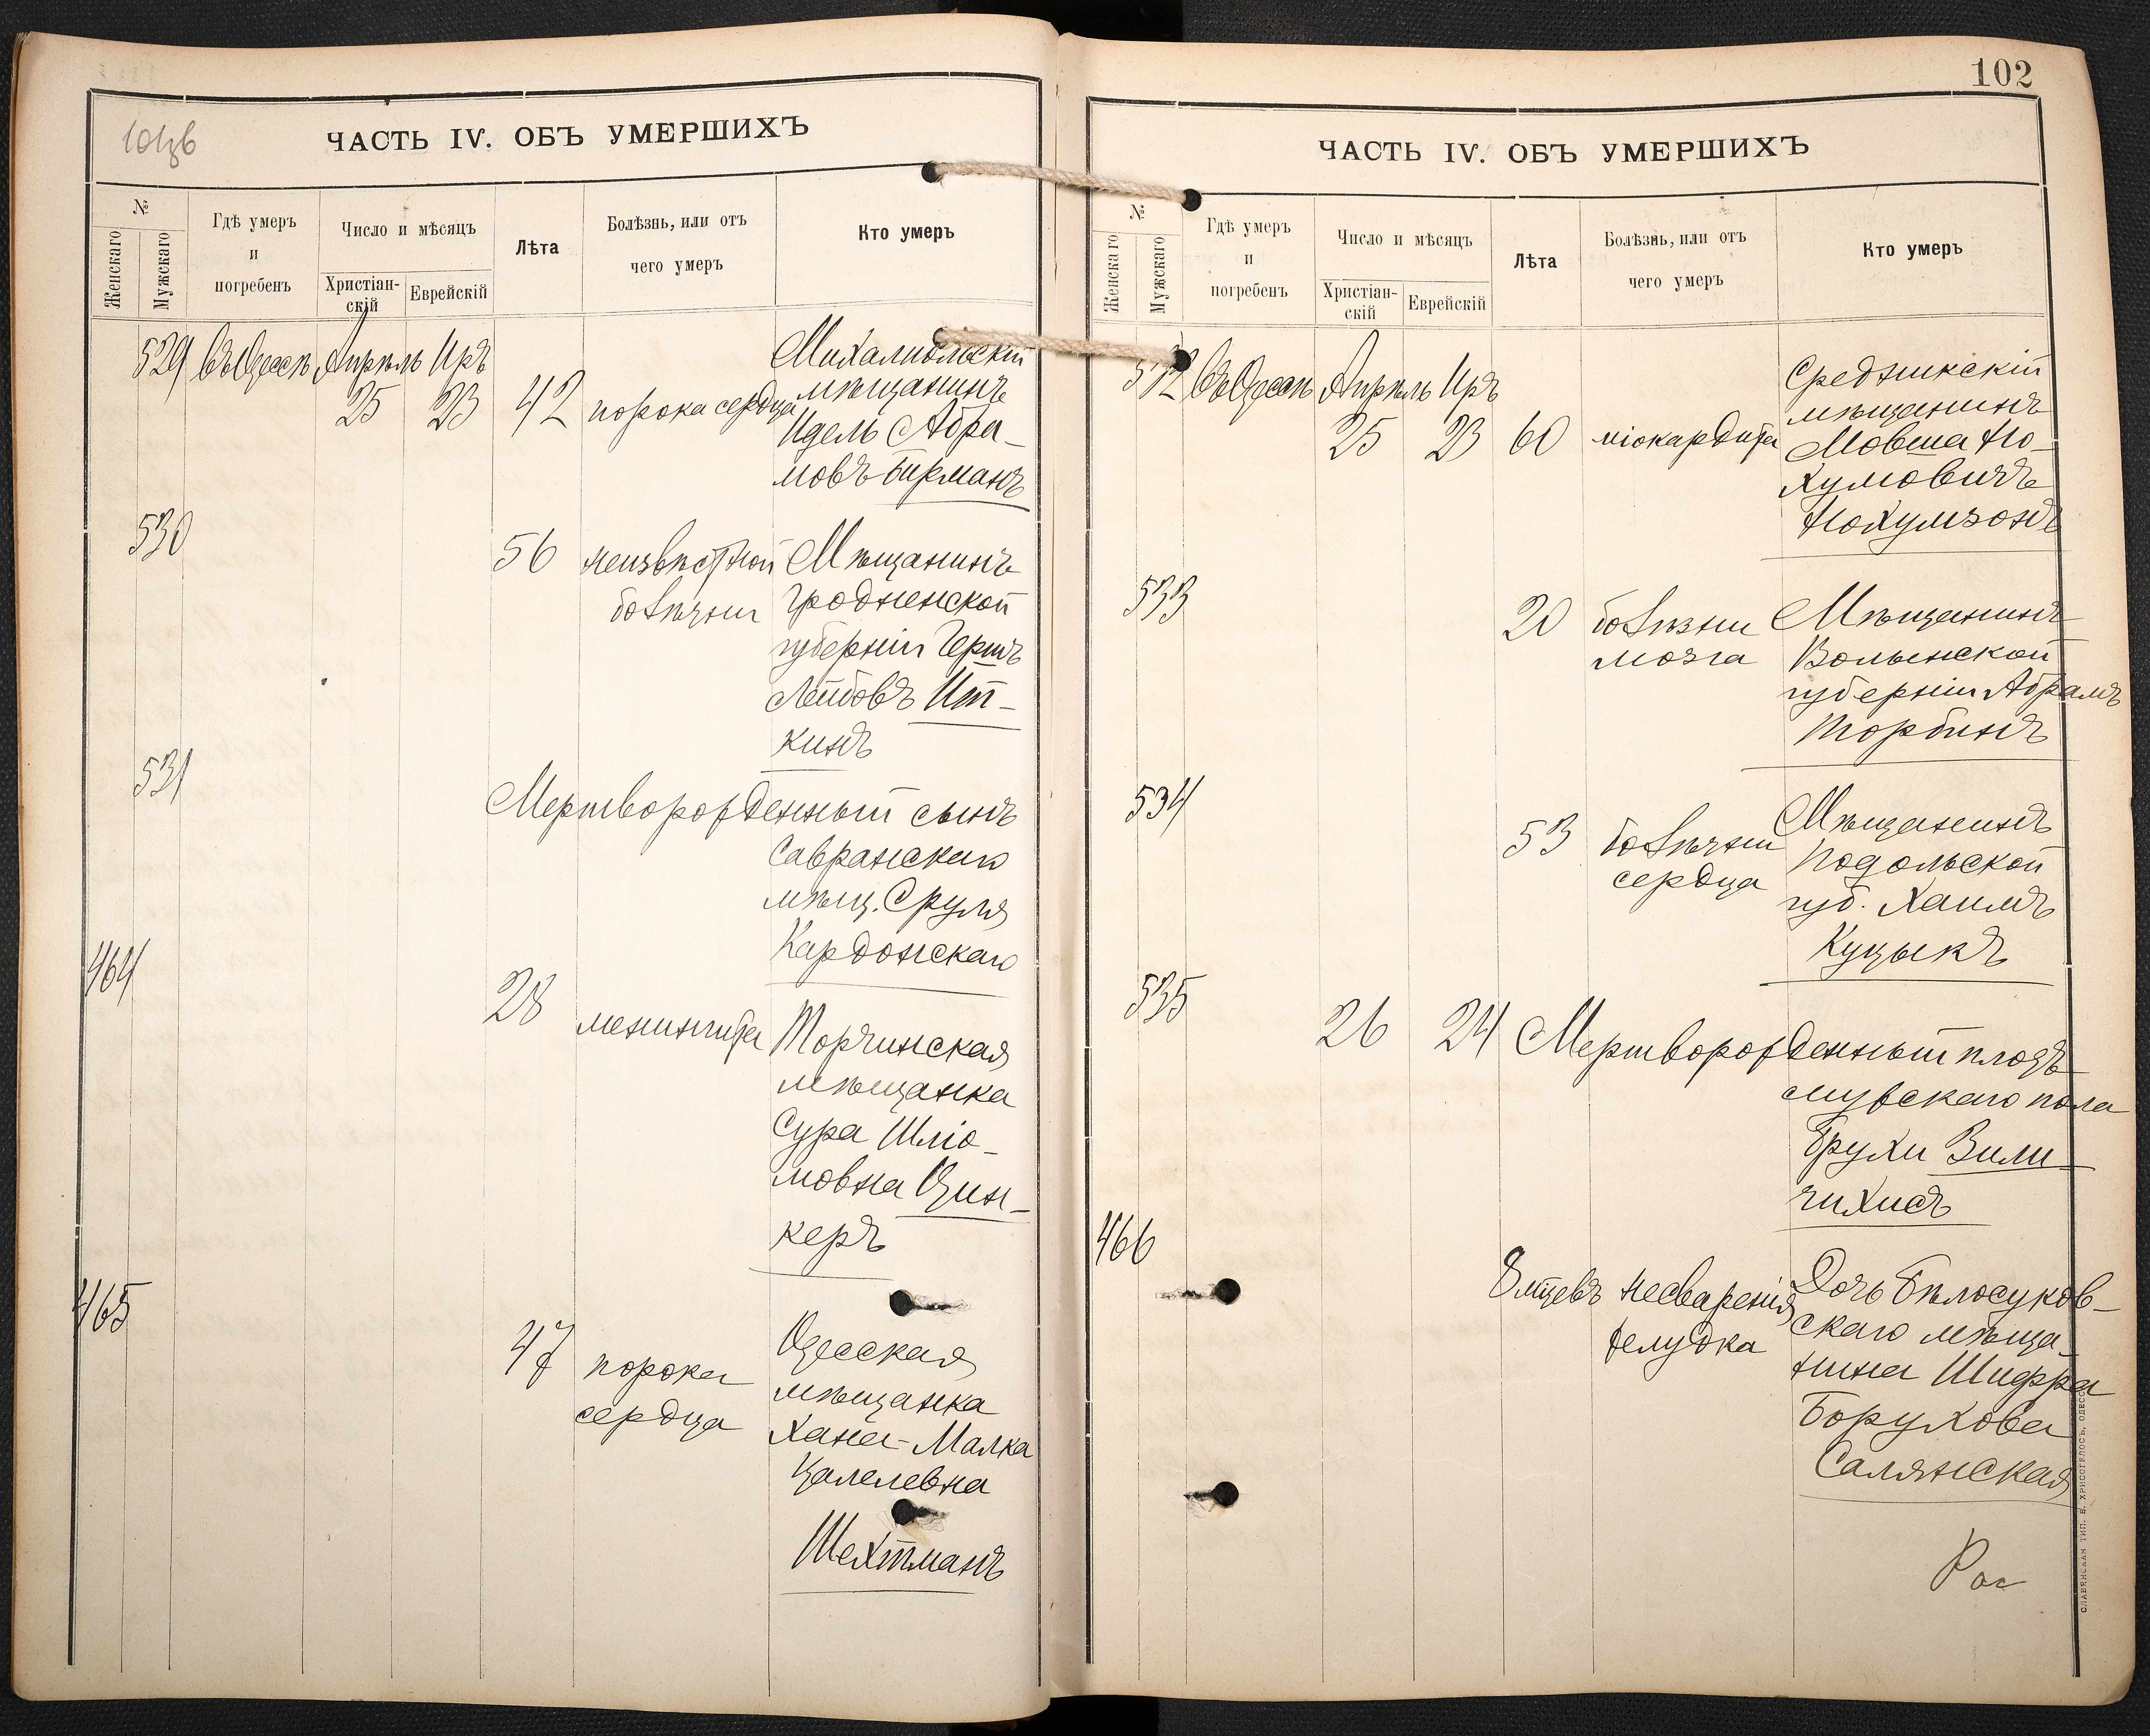 101 зв
ЧАСТЬ IV. ОБЪ УМЕРШИХЪ
№
Женскаго
Мужскаго
Гдѣ умеръ
и
погребенъ
Число и мѣсяцъ
Христіан-
скій
Еврейскій
Лѣта
Болѣзнь, или отъ
чего умеръ
Кто умеръ
529 въ Одессѣ Апрѣль Иръ
25 23 42 порока сердца
Михалпольскій
мѣщанинъ
Идель Абра-
мовъ Бирманъ
530
56 неизвѣстной
болѣзни
Мѣщанинъ
Гродненской
губерніи Гершъ
Лейбовъ Ит-
кинъ
531
Мертворожденный сынъ
Савранскаго
мѣщ. Сруля
Кардонскаго
464
28 менингита
Торчинская
мѣщанка
Сура Шліо-
мовна Цин-
керъ
465
47 порока
сердца
Одесская
мѣщанка
Хана-Малка
Цалелевна
Шехтманъ
102
ЧАСТЬ IV. ОБЪ УМЕРШИХЪ
№
Женскаго
Мужскаго
Гдѣ умеръ
и
погребенъ
Число и мѣсяцъ
Христіан-
скій
Еврейскій
Лѣта
Болѣзнь, или отъ
чего умеръ
Кто умеръ
532 въ Одессѣ Апрѣль Иръ
25 23 60 міокардита
Средникскій
мѣщанинъ
Мовша Но-
хумовичъ
Нохумзонъ
533
20 болѣзни
мозга
Мѣщанинъ
Волынской
губерніи Абрамъ
Торбинъ
534
53 болѣзни
сердца
Мѣщанинъ
Подольской
губ. Хаимъ
Куцыкъ
535
26 24 Мертворожденный плодъ
мужскаго пола
Брухи Вили-
чихисъ
466
8 мѣцевъ несваренія
желудка
Дочь Бѣлосуков-
скаго мѣща-
нина Шифра
Борухова
Салянская
СЛАВЯНСКАЯ ТИП. Н. ХРИСОГЕЛОСЪ, ОДЕССА